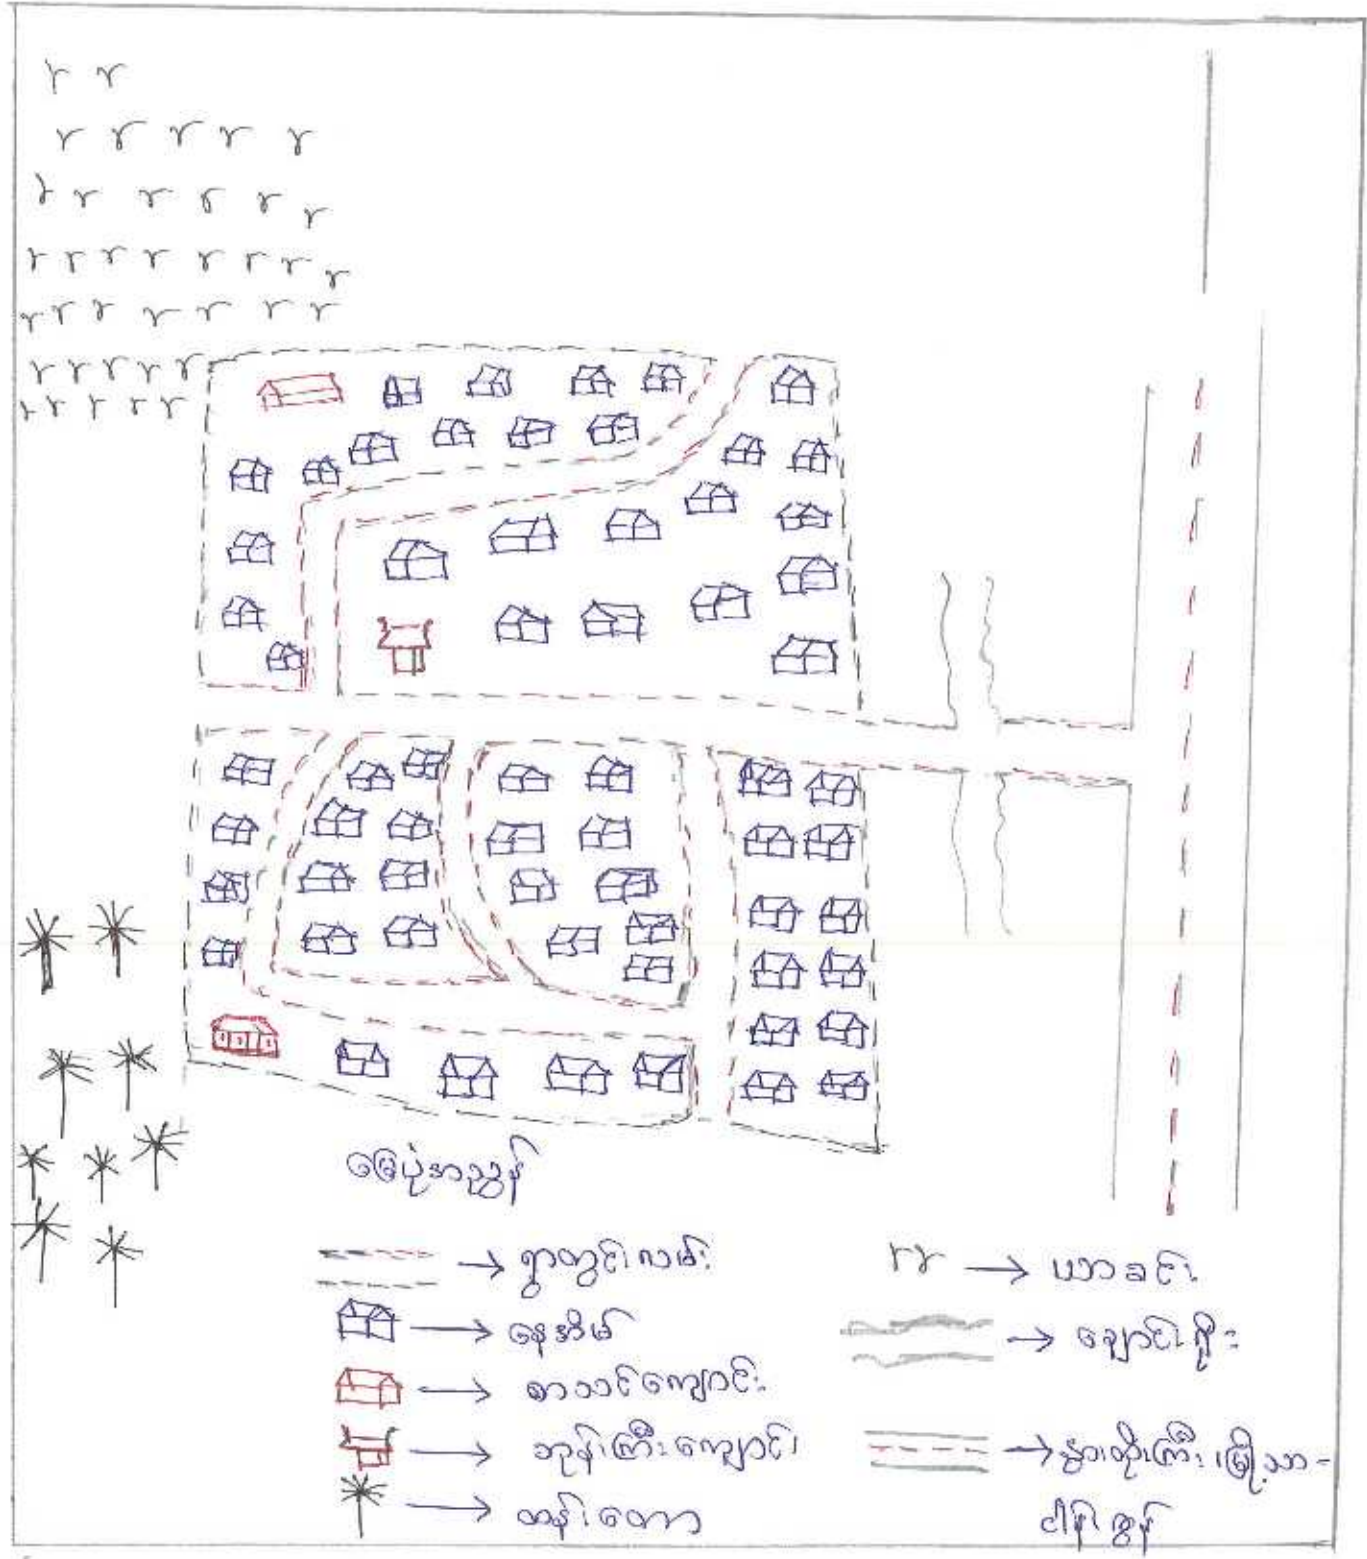 မြေပုံအညွှန်း
ရွာတွင်းလမ်း
နေအိမ်
စာသင်ကျောင်း
ဘုန်းကြီးကျောင်း
ထန်းတော
ယာခင်း
ချောင်းရိုး
နွားထိုးကြီး၊ မြို့သာ-